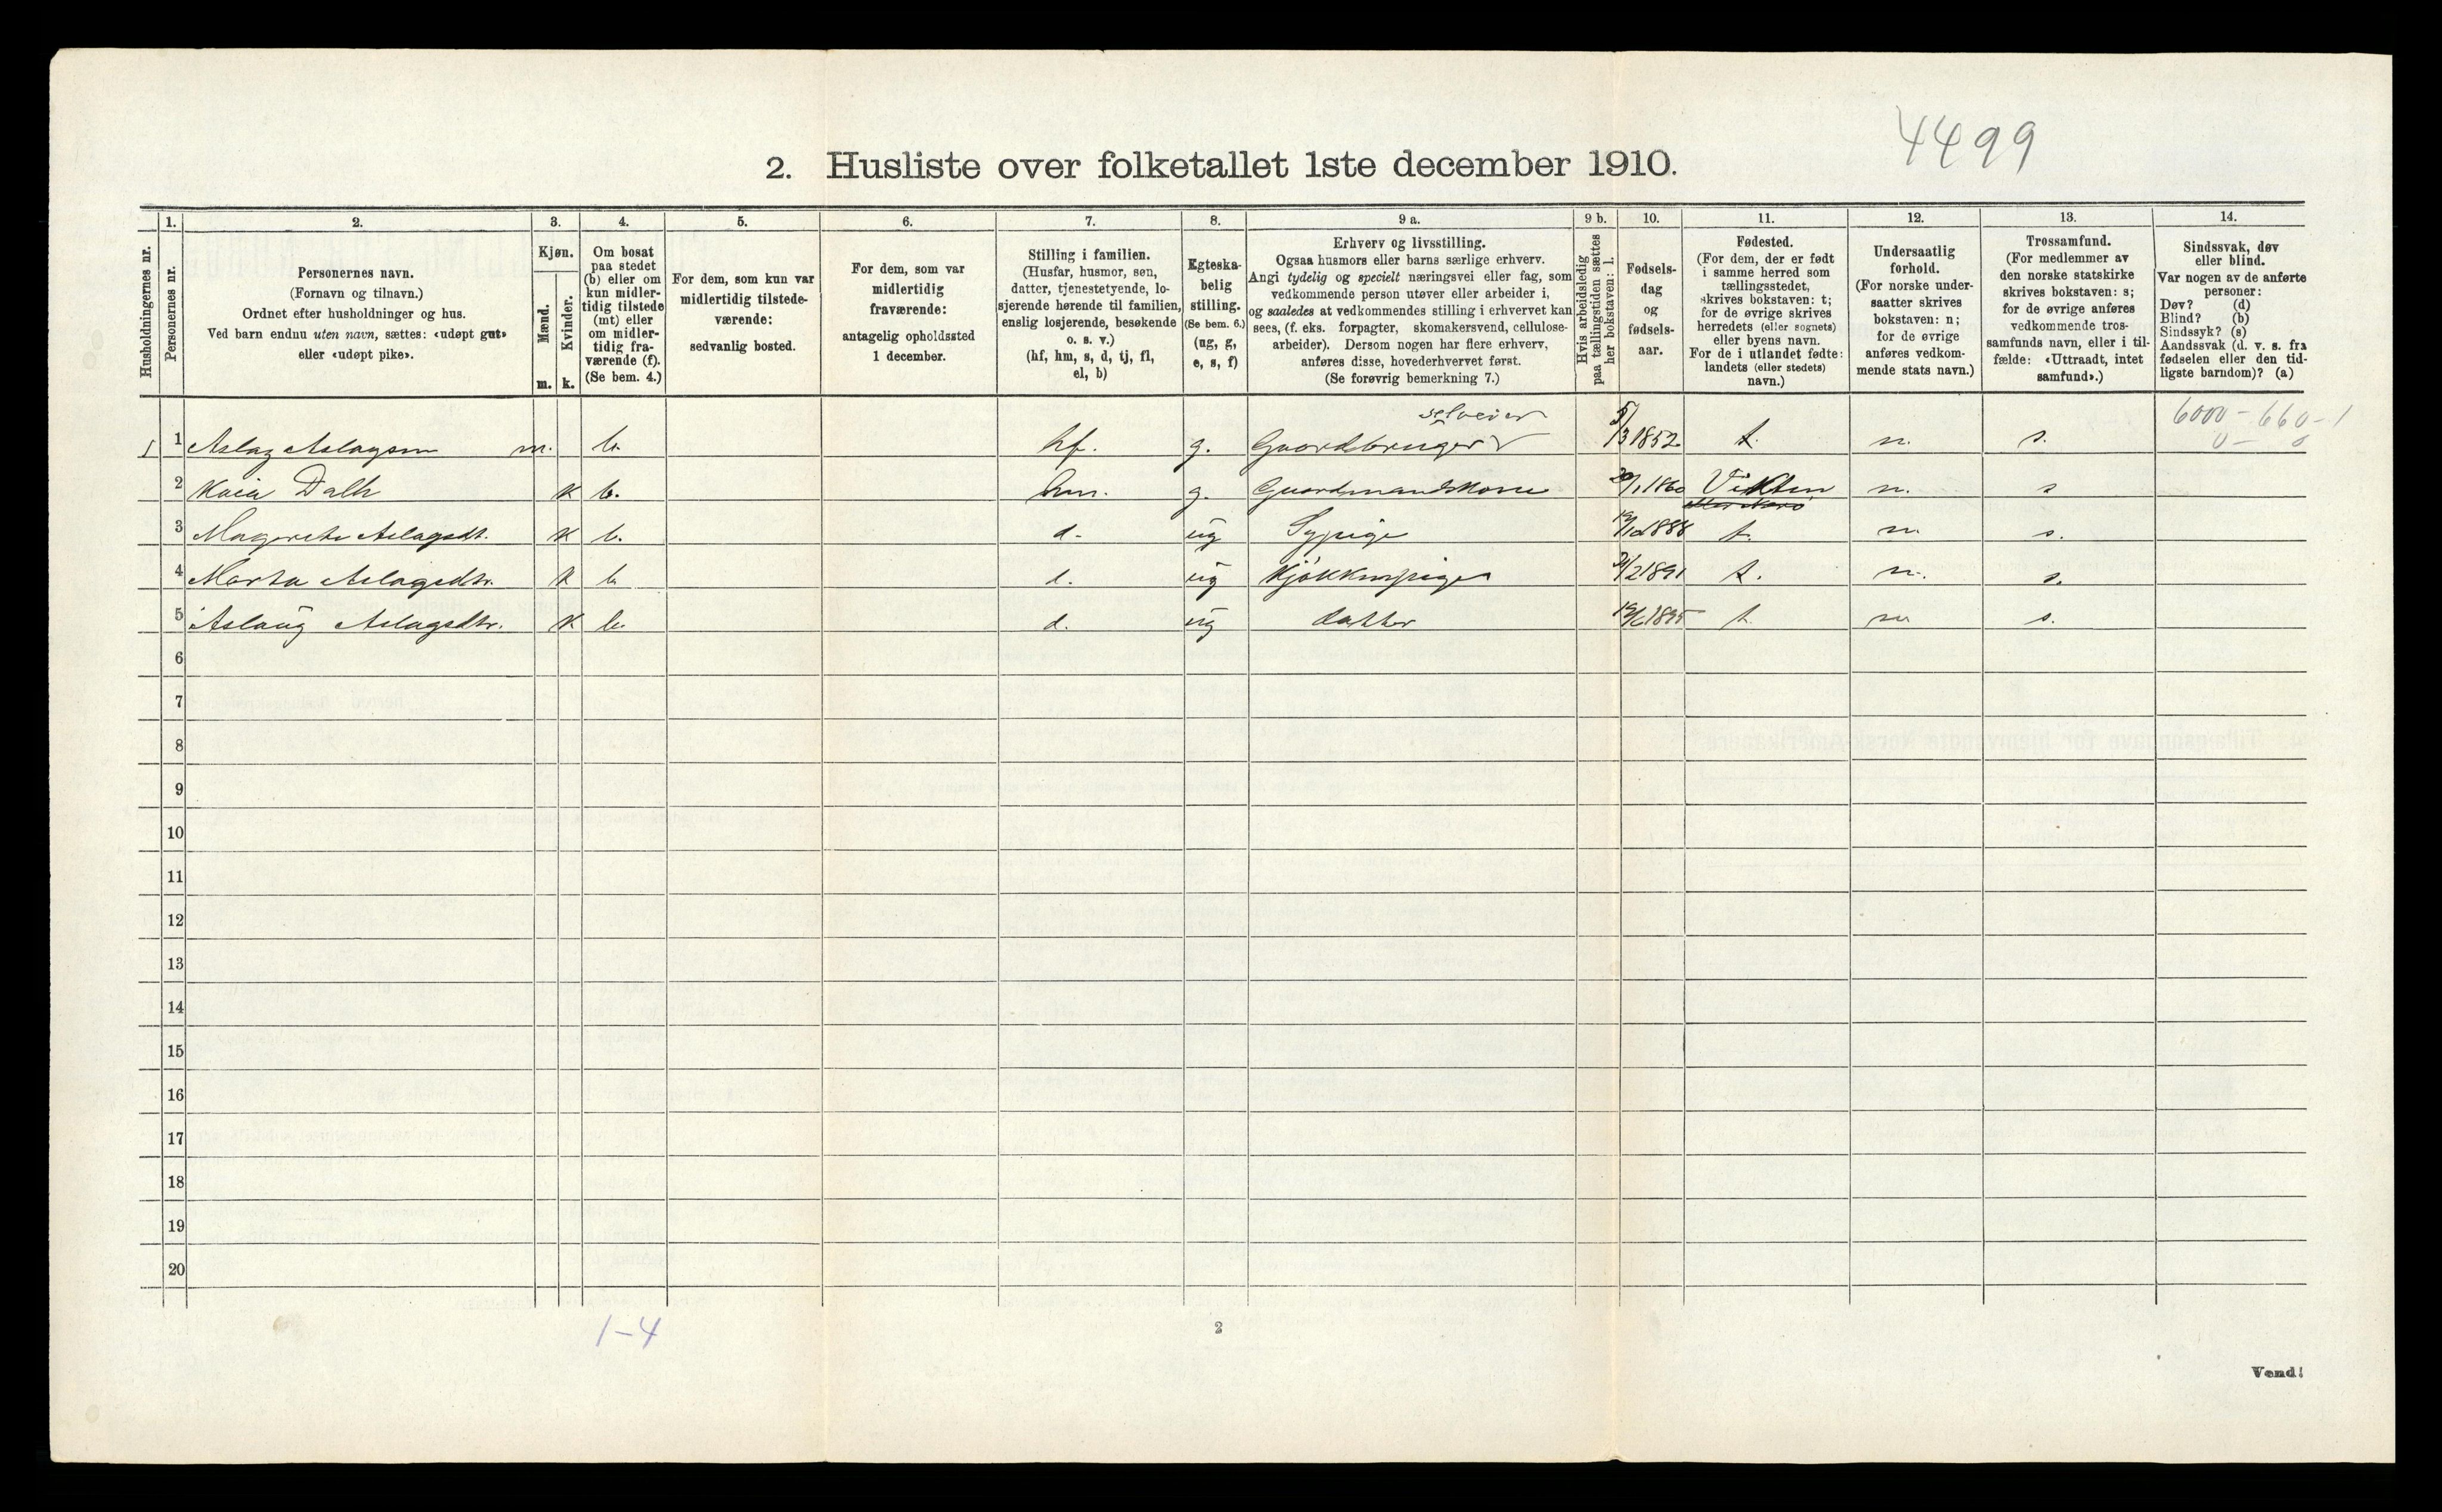 4499
2. Husliste over folketallet 1ste december 1910.
Husholdningernes nr.
1.
Personernes nr.
2.
Personernes navn.
(Fornavn og tilnavn.)
Ordnet efter husholdninger og hus.
Ved barn endnu uten navn, sættes: «udøpt gut»
eller «udøpt pike».
3.
Kjøn.
Mænd.
Kvinder.
m. k.
4.
Om bosat
paa stedet
(b) eller om
kun midler-
tidig tilstede
(mt) eller
om midler-
tidig fra-
værende (f).
(Se bem. 4.)
5.
For dem, som kun var
midlertidig tilstede-
værende:
sedvanlig bosted.
6.
For dem, som var
midlertidig
fraværende:
antagelig opholdssted
1 december.
7.
Stilling i familien.
(Husfar, husmor, søn,
datter, tjenestetyende, lo-
sjerende hørende til familien,
enslig losjerende, besøkende
o. s. v.)
(hf, hm, s, d, tj, fl,
el, b)
8.
Egteska-
belig
stilling.
(Se bem. 6.)
(ug, g,
e, s, f)
9 a.
Erhverv og livsstilling.
Ogsaa husmors eller barns særlige erhverv.
Angi tydelig og specielt næringsvei eller fag, som
vedkommende person utøver eller arbeider i,
og saaledes at vedkommendes stilling i erhvervet kan
sees, (f. eks. forpagter, skomakersvend, cellulose-
arbeider). Dersom nogen har flere erhverv,
anføres disse, hovederhvervet først.
(Se forøvrig bemerkning 7.)
9 b.
Hvis arbeidsledig
paa tællingstiden sættes
her bokstaven: l.
10.
Fødsels-
dag
og
fødsels-
aar.
11.
Fødested.
(For dem, der er født
i samme herred som
tællingsstedet,
skrives bokstaven: t;
for de øvrige skrives
herredets (eller sognets)
eller byens navn.
For de i utlandet fødte:
landets (eller stedets)
navn.)
12.
Undersaatlig
forhold.
(For norske under-
saatter skrives
bokstaven: n;
for de øvrige
anføres vedkom-
mende stats navn.)
13.
Trossamfund.
(For medlemmer av
den norske statskirke
skrives bokstaven: s;
for de øvrige anføres
vedkommende tros-
samfunds navn, eller i til-
fælde: «Uttraadt, intet
samfund».)
14.
Sindssvak, døv
eller blind.
Var nogen av de anførte
personer:
Døv? (d)
Blind? (b)
Sindssyk? (s)
Aandssvak (d. v. s. fra
fødselen eller den tid-
ligste barndom)? (a)
selveier 6000 - 660 - 1
1 Aslag Aslagsen m. b. hf. g. Gaardbruger 5/3 1852 t. n. s. 0 - 0
2 Kaia Dalh k b. hm. g. Gaardmandskone 1860 n. s
3 Magrethe Aslagsdt. k b. d. ug Sypige 1888 t. n. s.
4 Marta Aslagsdtr. k b d. ug Kjøkkenpige 1891 t. n. s.
5 Aslaug Aslagsdtr. k b. d. ug datter 19/6 1895 t. n s.
6
7
8
9
10
11
12
13
14
15
16
17
18
19
20
1-4
2
Vend!